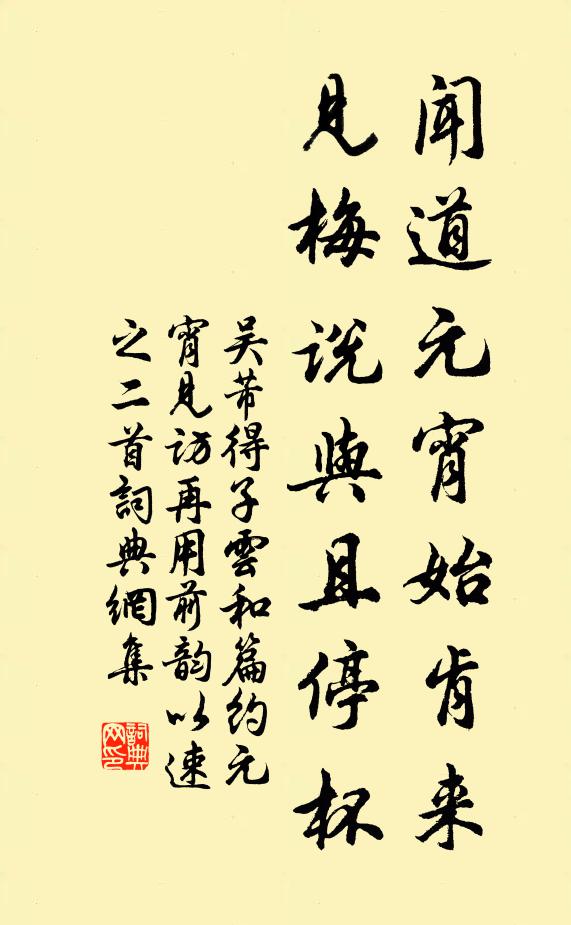 闻道元宵始肯来
见梅説與且停杯
吴芾得子雲和篇约元
宵见访再用前韵以速
之二首詞典網集
詞典网印